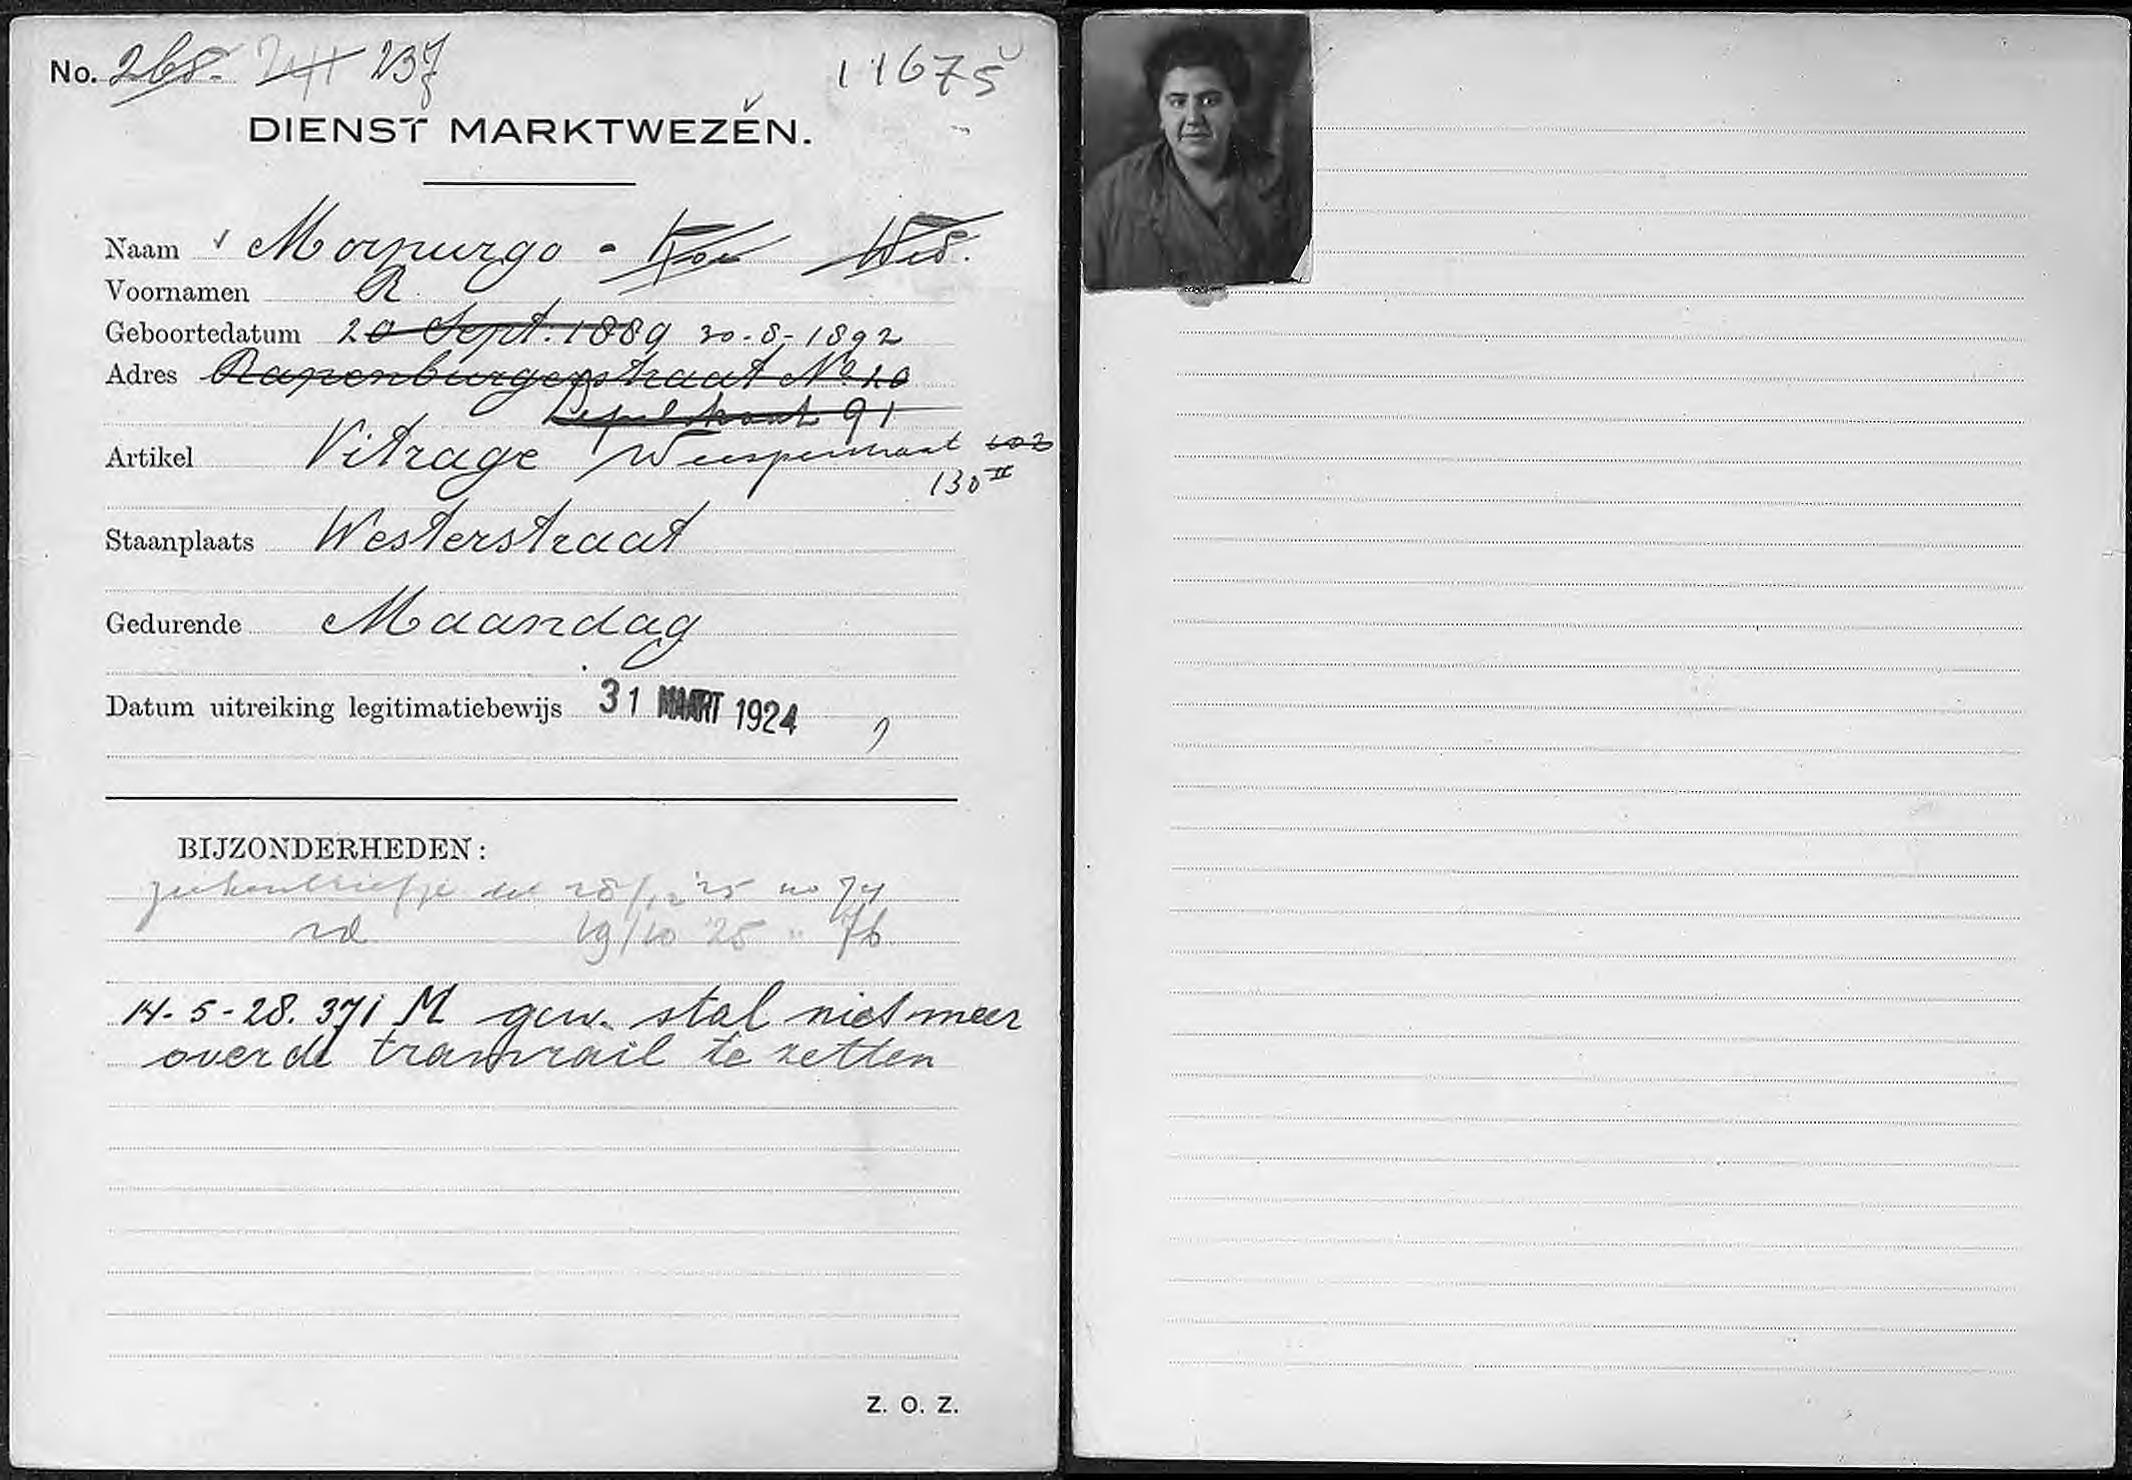 No. 268. 237 11675
DIENST MARKTWEZEN.
Naam Morpurgo - Wed.
Voornamen R.
Geboortedatum 20 Sept. 1889 20-8-1892
Adres Rapenburgerstraat No. 20
Lepelstraat 91
Artikel Vitrage Weesperstraat 102
130 II
Staanplaats Westerstraat
Gedurende Maandag
Datum uitreiking legitimatiebewijs 31 MAART 1924
BIJZONDERHEDEN:
ziekenbriefje 28/12 '25 no 74
id 19/10 '25 " 76
14-5-28. 371 M gew. stal niet meer
over de tramrail te zetten
Z. O. Z.